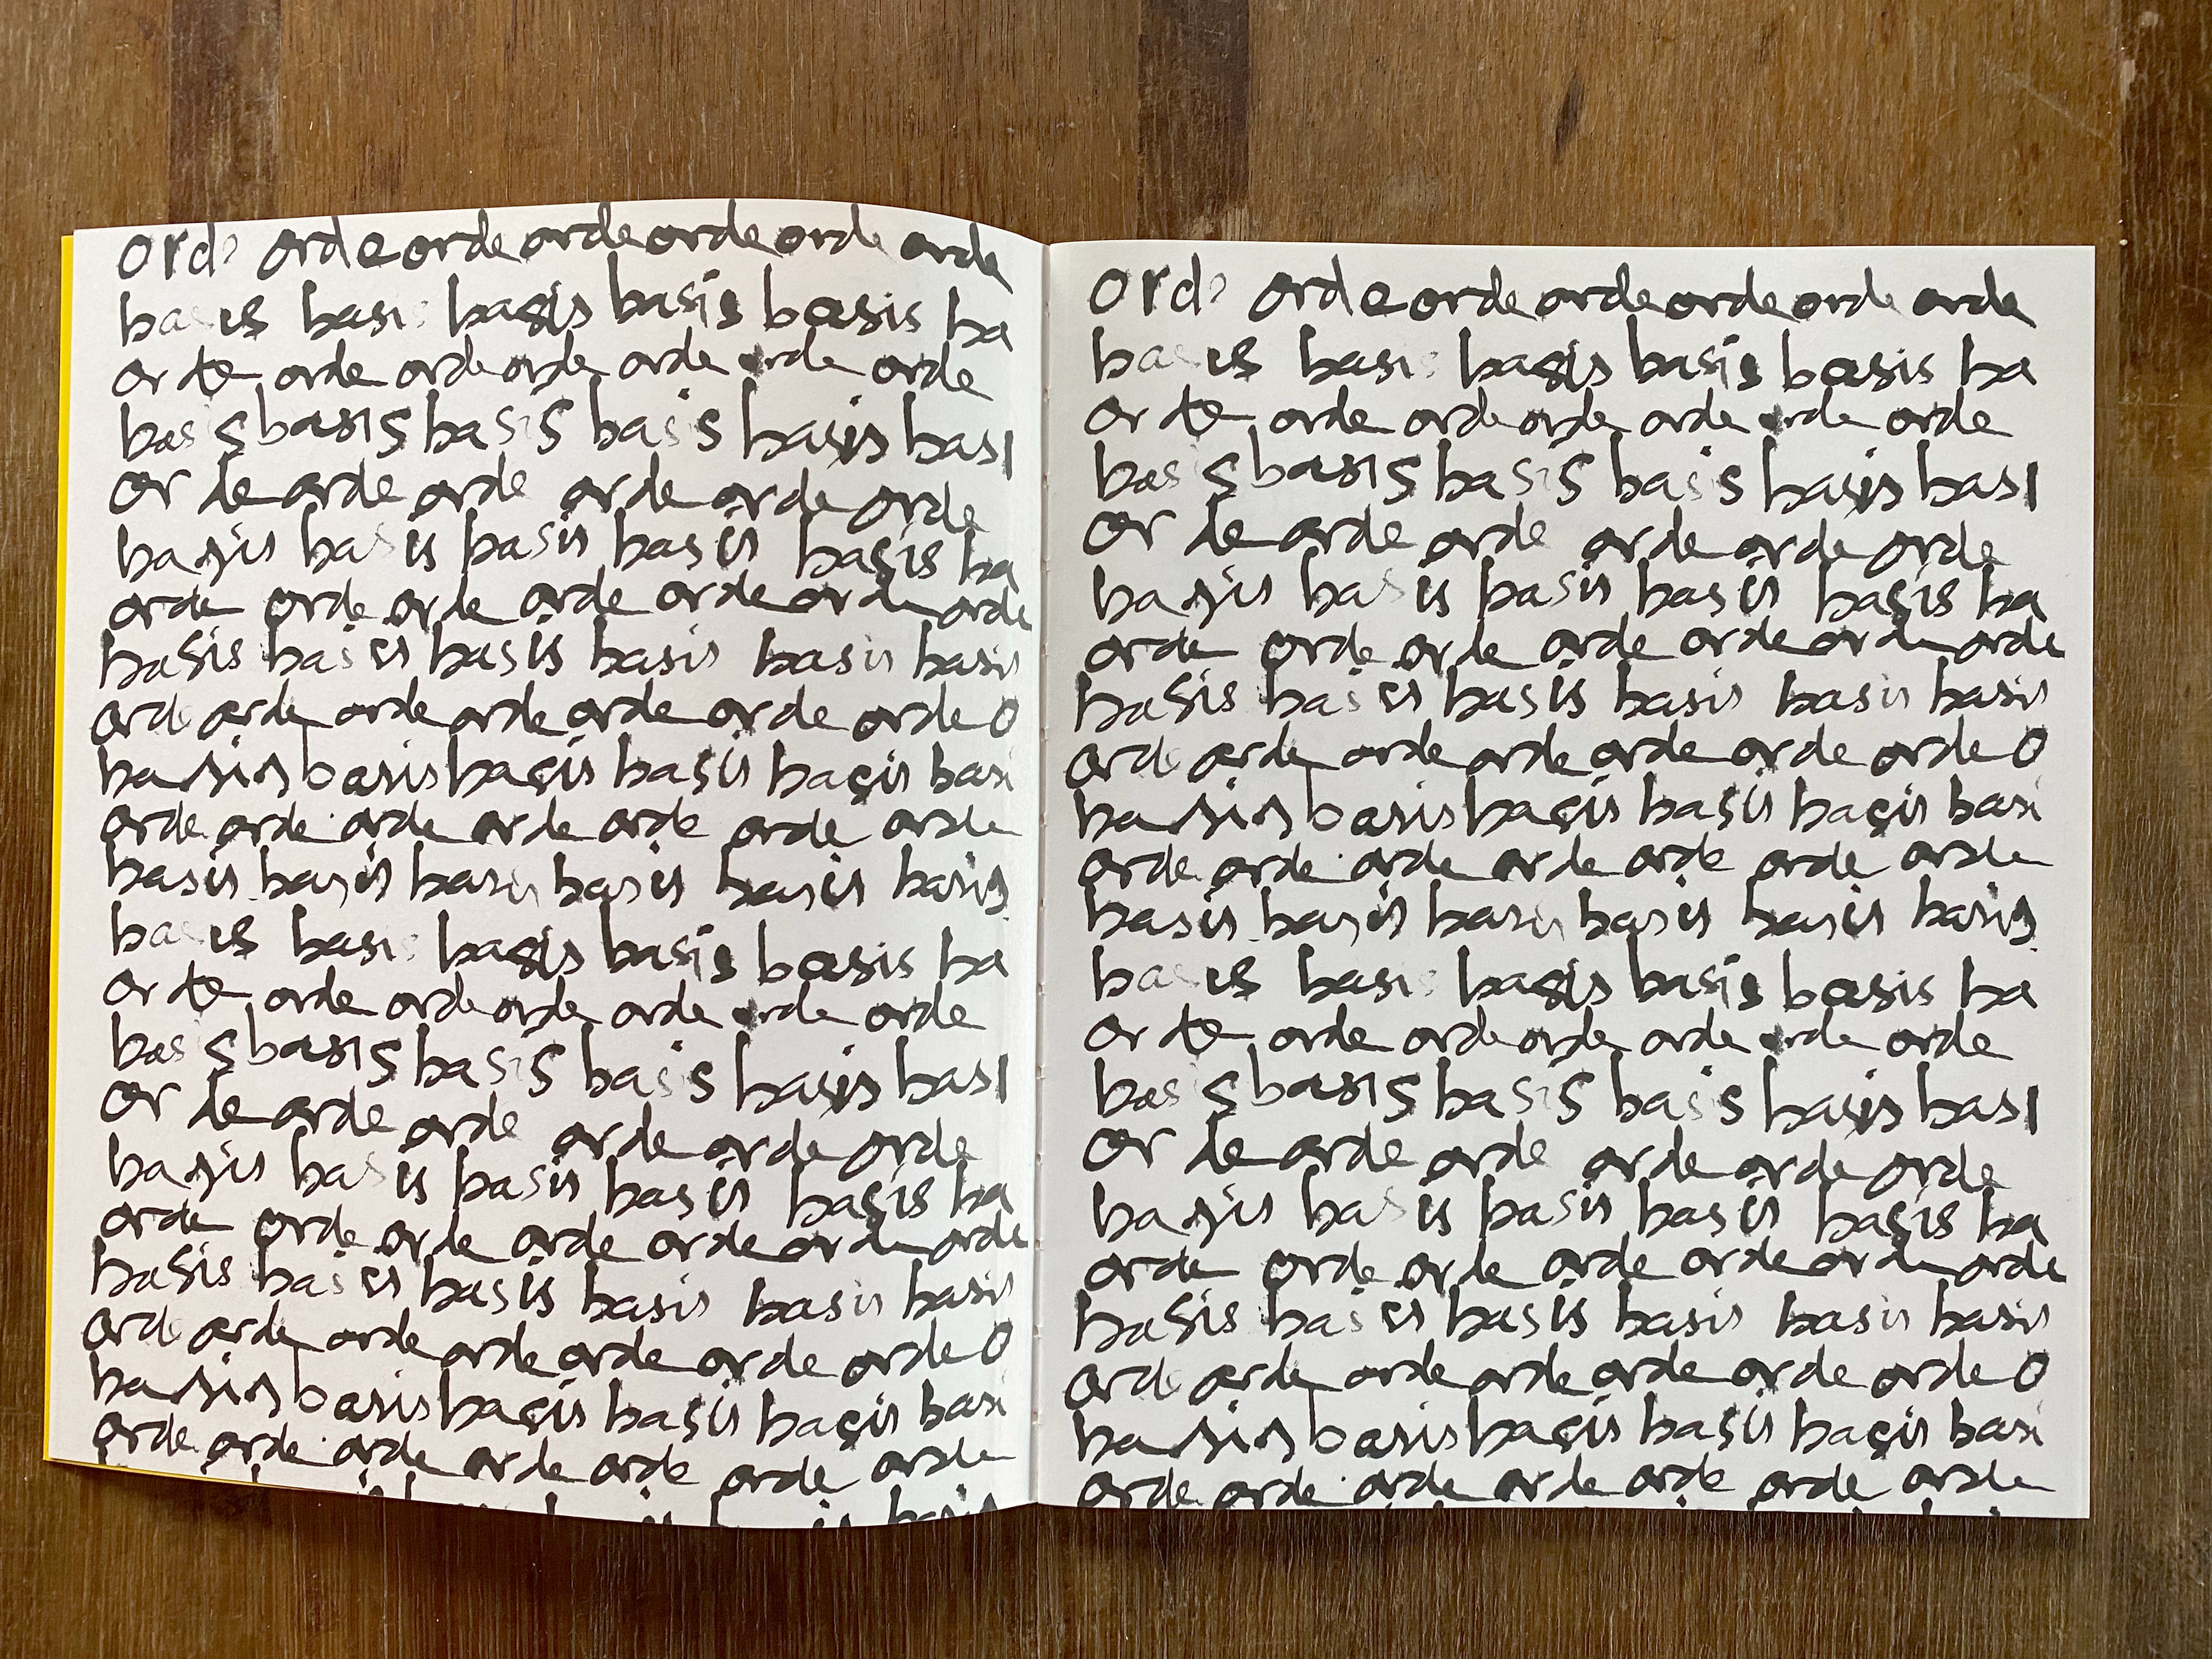 orde orde orde orde orde orde orde
basis basis basis basis basis ba
orde orde orde orde orde orde orde
basis basis basis basis basis basi
orde orde orde orde orde orde
basis basis basis basis basis ba
orde orde orde orde orde orde orde
basis basis basis basis basis basis
orde orde orde orde orde orde orde o
basis basis basis basis basis basi
orde orde orde orde orde orde orde
basis basis basis basis basis basis
basis basis basis basis basis ba
orde orde orde orde orde orde orde
basis basis basis basis basis basi
orde orde orde orde orde orde
basis basis basis basis basis ba
orde orde orde orde orde orde orde
basis basis basis basis basis basis
orde orde orde orde orde orde orde o
basis basis basis basis basis basi
orde orde orde orde orde orde orde
orde orde orde orde orde orde orde
basis basis basis basis basis ba
orde orde orde orde orde orde orde
basis basis basis basis basis basi
orde orde orde orde orde orde
basis basis basis basis basis ba
orde orde orde orde orde orde orde
basis basis basis basis basis basis
orde orde orde orde orde orde orde o
basis basis basis basis basis basi
orde orde orde orde orde orde orde
basis basis basis basis basis basis
basis basis basis basis basis ba
orde orde orde orde orde orde orde
basis basis basis basis basis basi
orde orde orde orde orde orde
basis basis basis basis basis ba
orde orde orde orde orde orde orde
basis basis basis basis basis basis
orde orde orde orde orde orde orde o
basis basis basis basis basis basi
orde orde orde orde orde orde orde